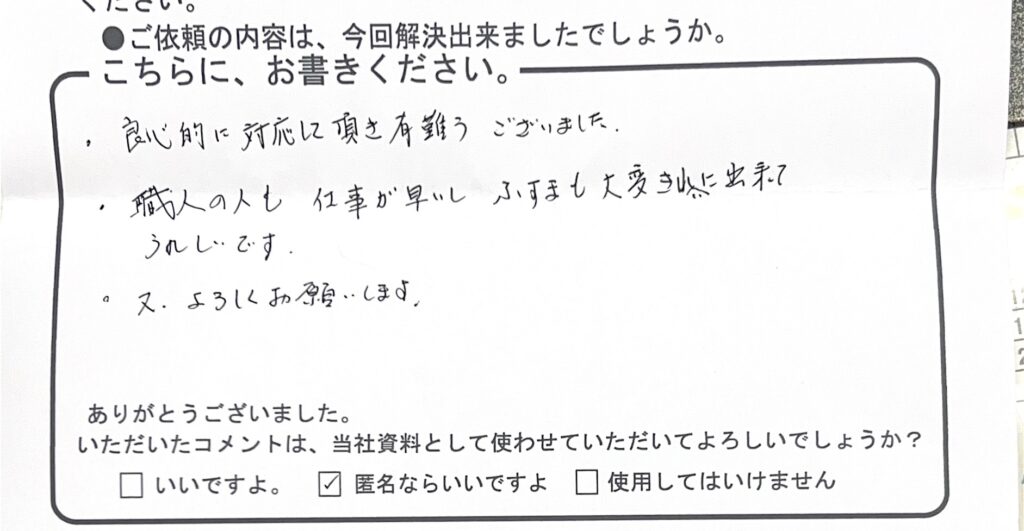 ください。
●ご依頼の内容は、今回解決出来ましたでしょうか。
こちらに、お書きください。
・良心的に対応して頂き有難うございました.
・職人の人も 仕事が早いし ふすまも大変きれいに出来て
うれしいです.
・又.よろしくお願いします.
ありがとうございました。
いただいたコメントは、当社資料として使わせていただいてよろしいでしょうか？
□ いいですよ。 ☑ 匿名ならいいですよ □ 使用してはいけません